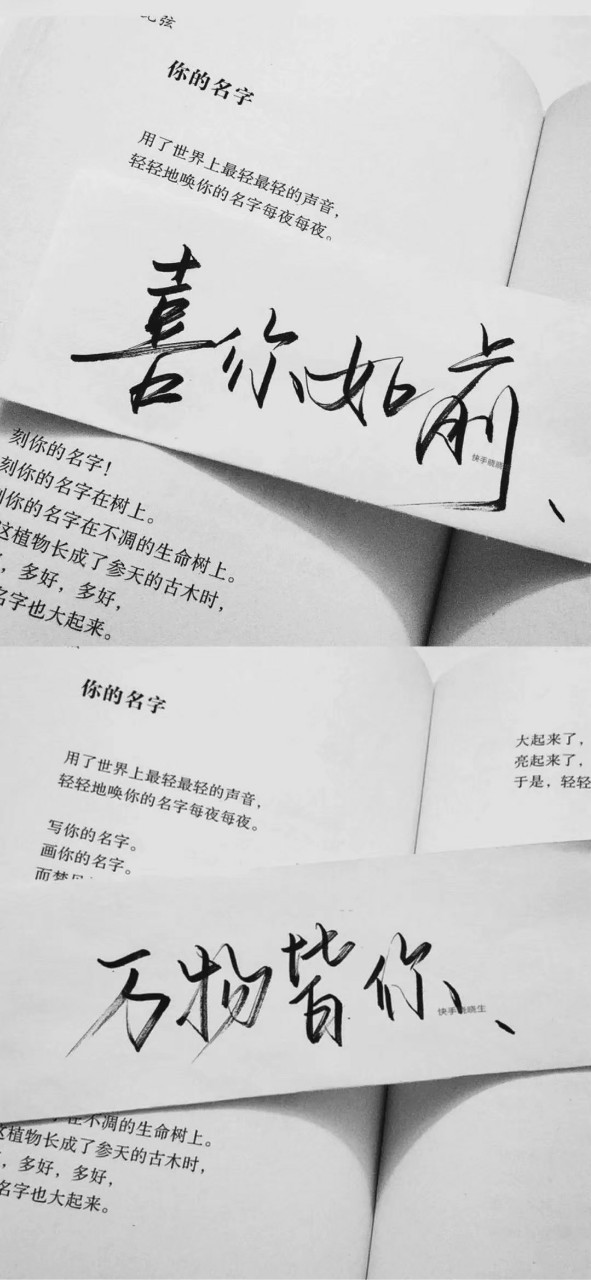 弦
你的名字
用了世界上最轻最轻的声音，
轻轻地唤你的名字每夜每夜。
喜你如前、
快手晓晓生
刻你的名字！
刻你的名字在树上。
刻你的名字在不凋的生命树上。
这植物长成了参天的古木时，
，多好，多好，
名字也大起来。
你的名字
用了世界上最轻最轻的声音，
轻轻地唤你的名字每夜每夜。
写你的名字。
画你的名字。
而梦见
大起来了，
亮起来了，
于是，轻轻
万物皆你、、
快手晓晓生
在不凋的生命树上。
这植物长成了参天的古木时，
，多好，多好，
名字也大起来。